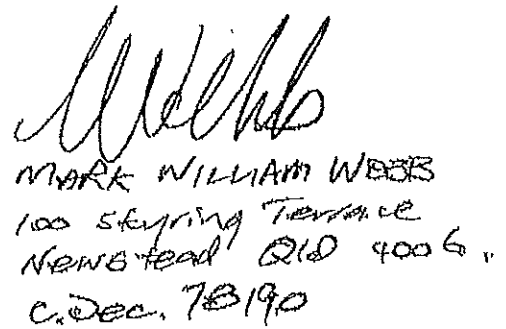 MWebb
MARK WILLIAM WEBB
100 Skyring Terrace
Newstead QLD 4006.
C.Dec. 78190